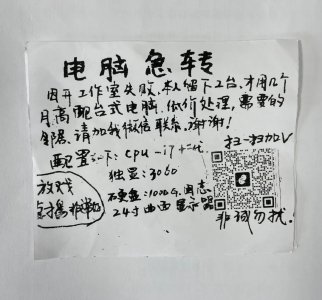 电脑急转
因开工作室失败,本人留下2台,才用几个
月高配台式电脑,低价处理,需要的
邻居,请加我微信联系,谢谢!
扫一扫加V
配置如下:cpu-i7十二代
独显:3060
硬盘:1000G.固态
24寸曲面显示器
游戏
直播非常好
非诚勿扰!